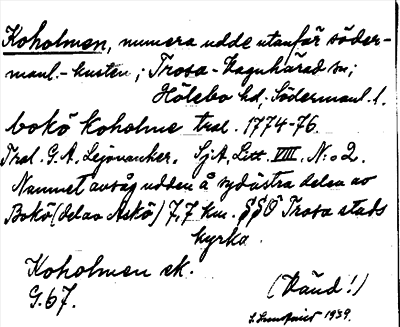 Koholmen, numera udde utanför söder-
manl.-kusten; Trosa-Vagnhärad sn;
Hölebo hd; Södermanl. l.
bokö koholme tral. 1774-76.
Tral. G.A. Lejonancker. SjA, Litt. VIII. N:o 2.
Namnet avsåg udden å sydöstra delen av
Bokö (del av Askö) 7,7 km. SSÖ Trosa stads
kyrka.
Koholmen ek.
G. 67.
(Känd!)
1939.